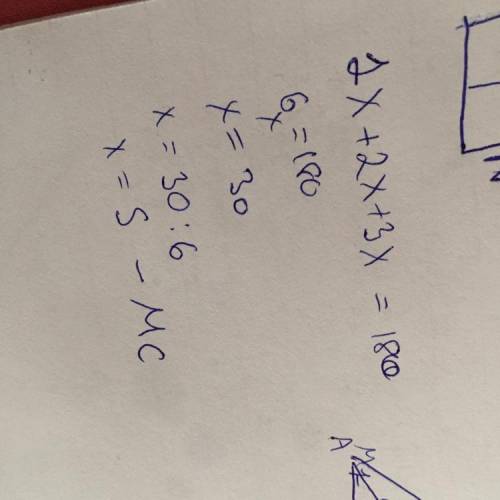 1x+2x+3x = 180
6x = 180
x = 30
x = 30 : 6
x = 5 - MC
A M